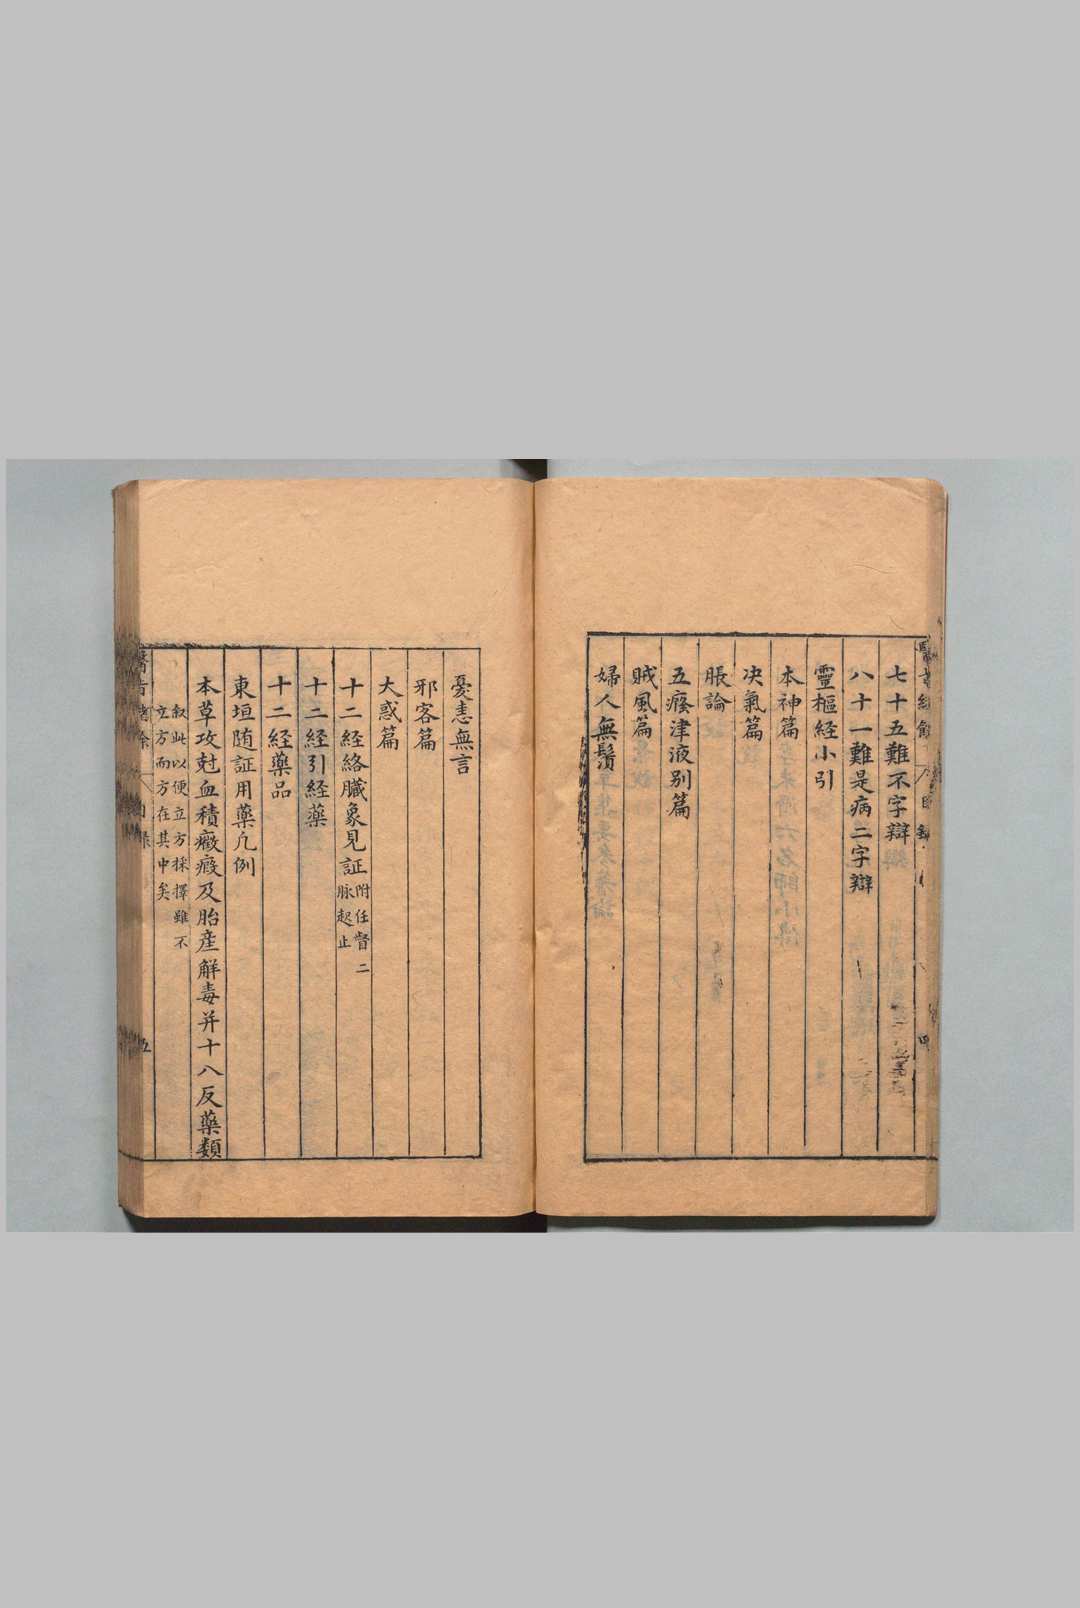 七十五難不字辯
八十一難是病二字辯
靈樞經小引
本神篇
决氣篇
脹論
五癃津液别篇
賊風篇
婦人無鬚
憂恚無言
邪客篇
大惑篇
十二経絡臓象見証附任督二
脉起止
十二経引経藥
十二経藥品
東垣随証用藥凢例
本草攻尅血積癥瘕及胎産解毒并十八反藥類
叙此以便立方採擇雖不
立方而方在其中矣
五